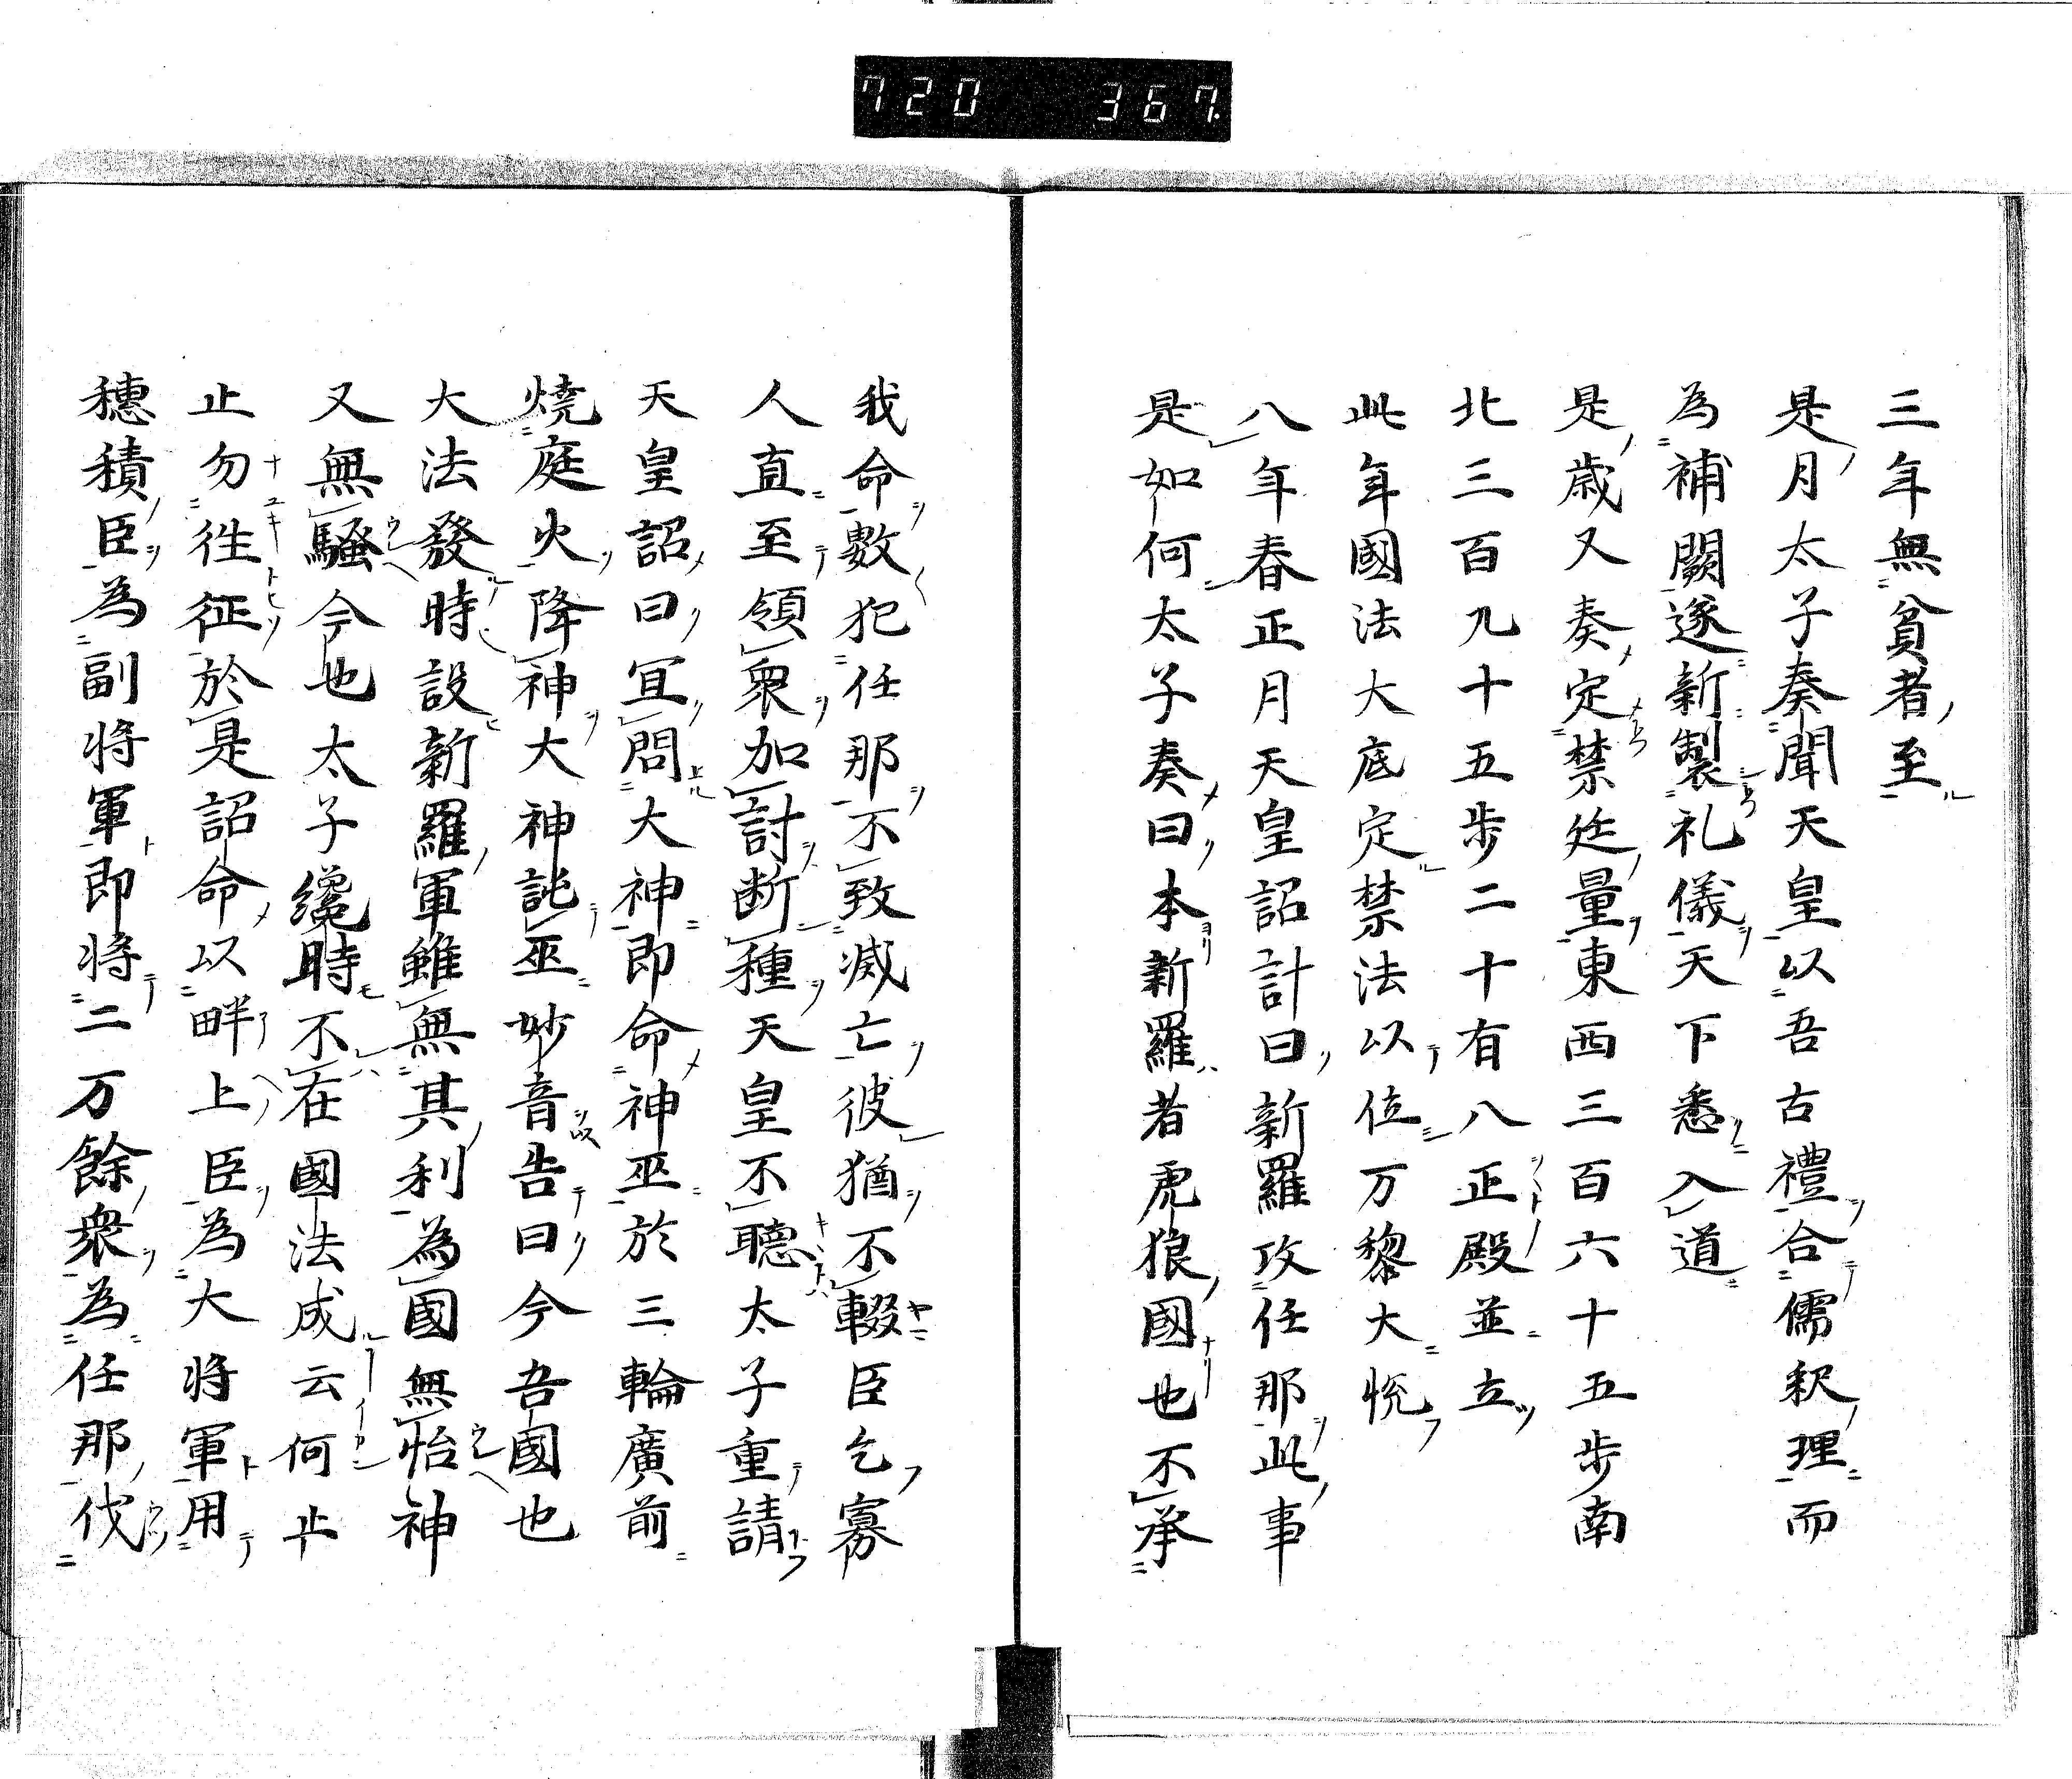 720 367.
三年無貧者至
是月太子奏聞天皇以吾古禮合儒釈理而
為補闕遂新製礼儀天下悉入道
是歳又奏定禁迯量東西三百六十五歩南
北三百九十五歩二十有八正殿並立
此年國法大底定禁法以位万黎大悦
八年春正月天皇詔計曰新羅攻任那此事
是如何太子奏曰本新羅者虎狼國也不承
我命數犯任那不致滅亡彼猶不輟臣乞寡
人直至領衆加討断種天皇不聴太子重請
天皇詔曰冝問大神即命神巫於三輪廣前
焼庭火降神大神託巫妙音告曰今吾國也
大法發時設新羅軍雖無其利為國無怡神
又無騒今也太子纔時不在國法成云何止
止勿徃征於是詔命以畔上臣為大将軍用
穗積臣為副将軍即将二万餘衆為任那伐